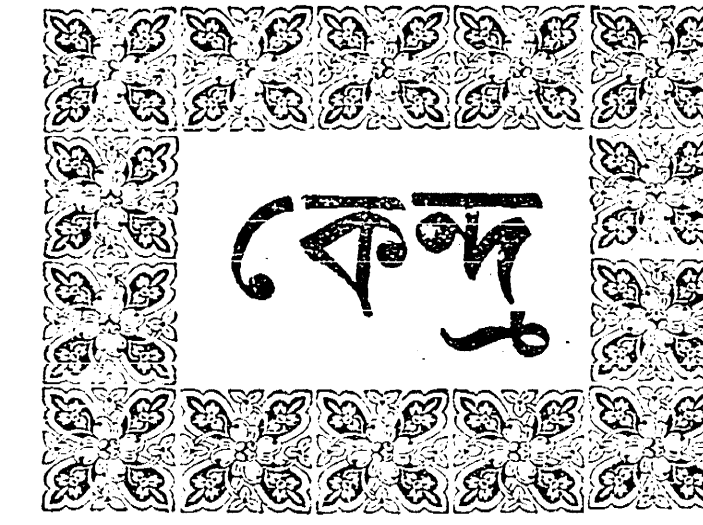 কেন্দু